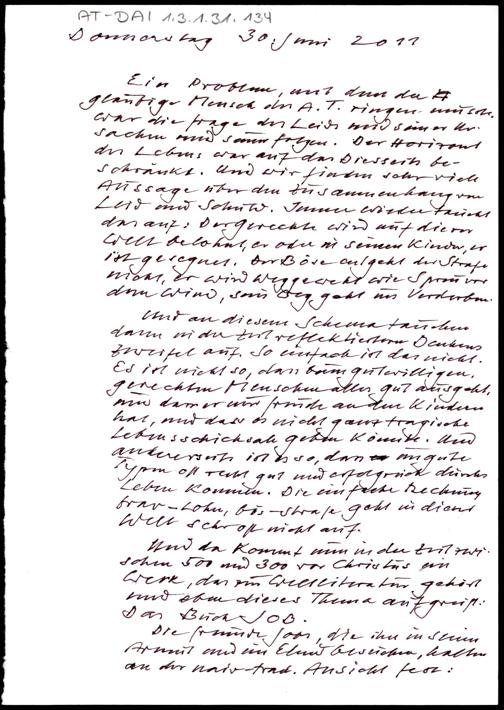 AT-DAI 1.3.1.31.134
Donnerstag 30. Juni 2011
Ein Problem, mit dem der
gläubige Mensch des A.T. ringen musste,
war die Frage des Leids und seiner Ur-
sachen und seine Folgen. Der Horizont
des Lebens war auf das Diesseits be-
schränkt. Und wir finden sehr viele
Aussage über den Zusammenhang von
Leid und Schuld. Immer wieder taucht
das auf: Der Gerechte wird auf dieser
Welt belohnt, er oder in seinen Kindern, er
ist gesegnet. Der Böse entgeht der Strafe
nicht, er wird weggeweht wie Spreu vor
dem Wind, sein Weg geht ins Verderben.
Und an diesem Schema tauchen
dann in der Zeit reflektierteren Denkens
Zweifel auf. So einfach ist das nicht.
Es ist nicht so, dass beim gutwilligen,
gerechten Menschen alles gut ausgeht,
und dass er nur Freude an den Kindern
hat, und dass es nicht ganz tragische
Lebensschicksale geben könnte. Und
andererseits ist es so, dass ungute
Typen oft recht gut und erfolgreich durchs
Leben kommen. Die einfache Rechnung
brav-Lohn, bös-Strafe geht in dieser
Welt sehr oft nicht auf.
Und da kommt nun in der Zeit zwi-
schen 500 und 300 vor Christus ein
Werk, das zur Weltliteratur gehört
und eben dieses Thema aufgreift:
Das Buch JOB.
Die Freunde Jobs, die ihn in seiner
Armut und im Elend besuchen, halten
an der naiv-trad. Ansicht fest: